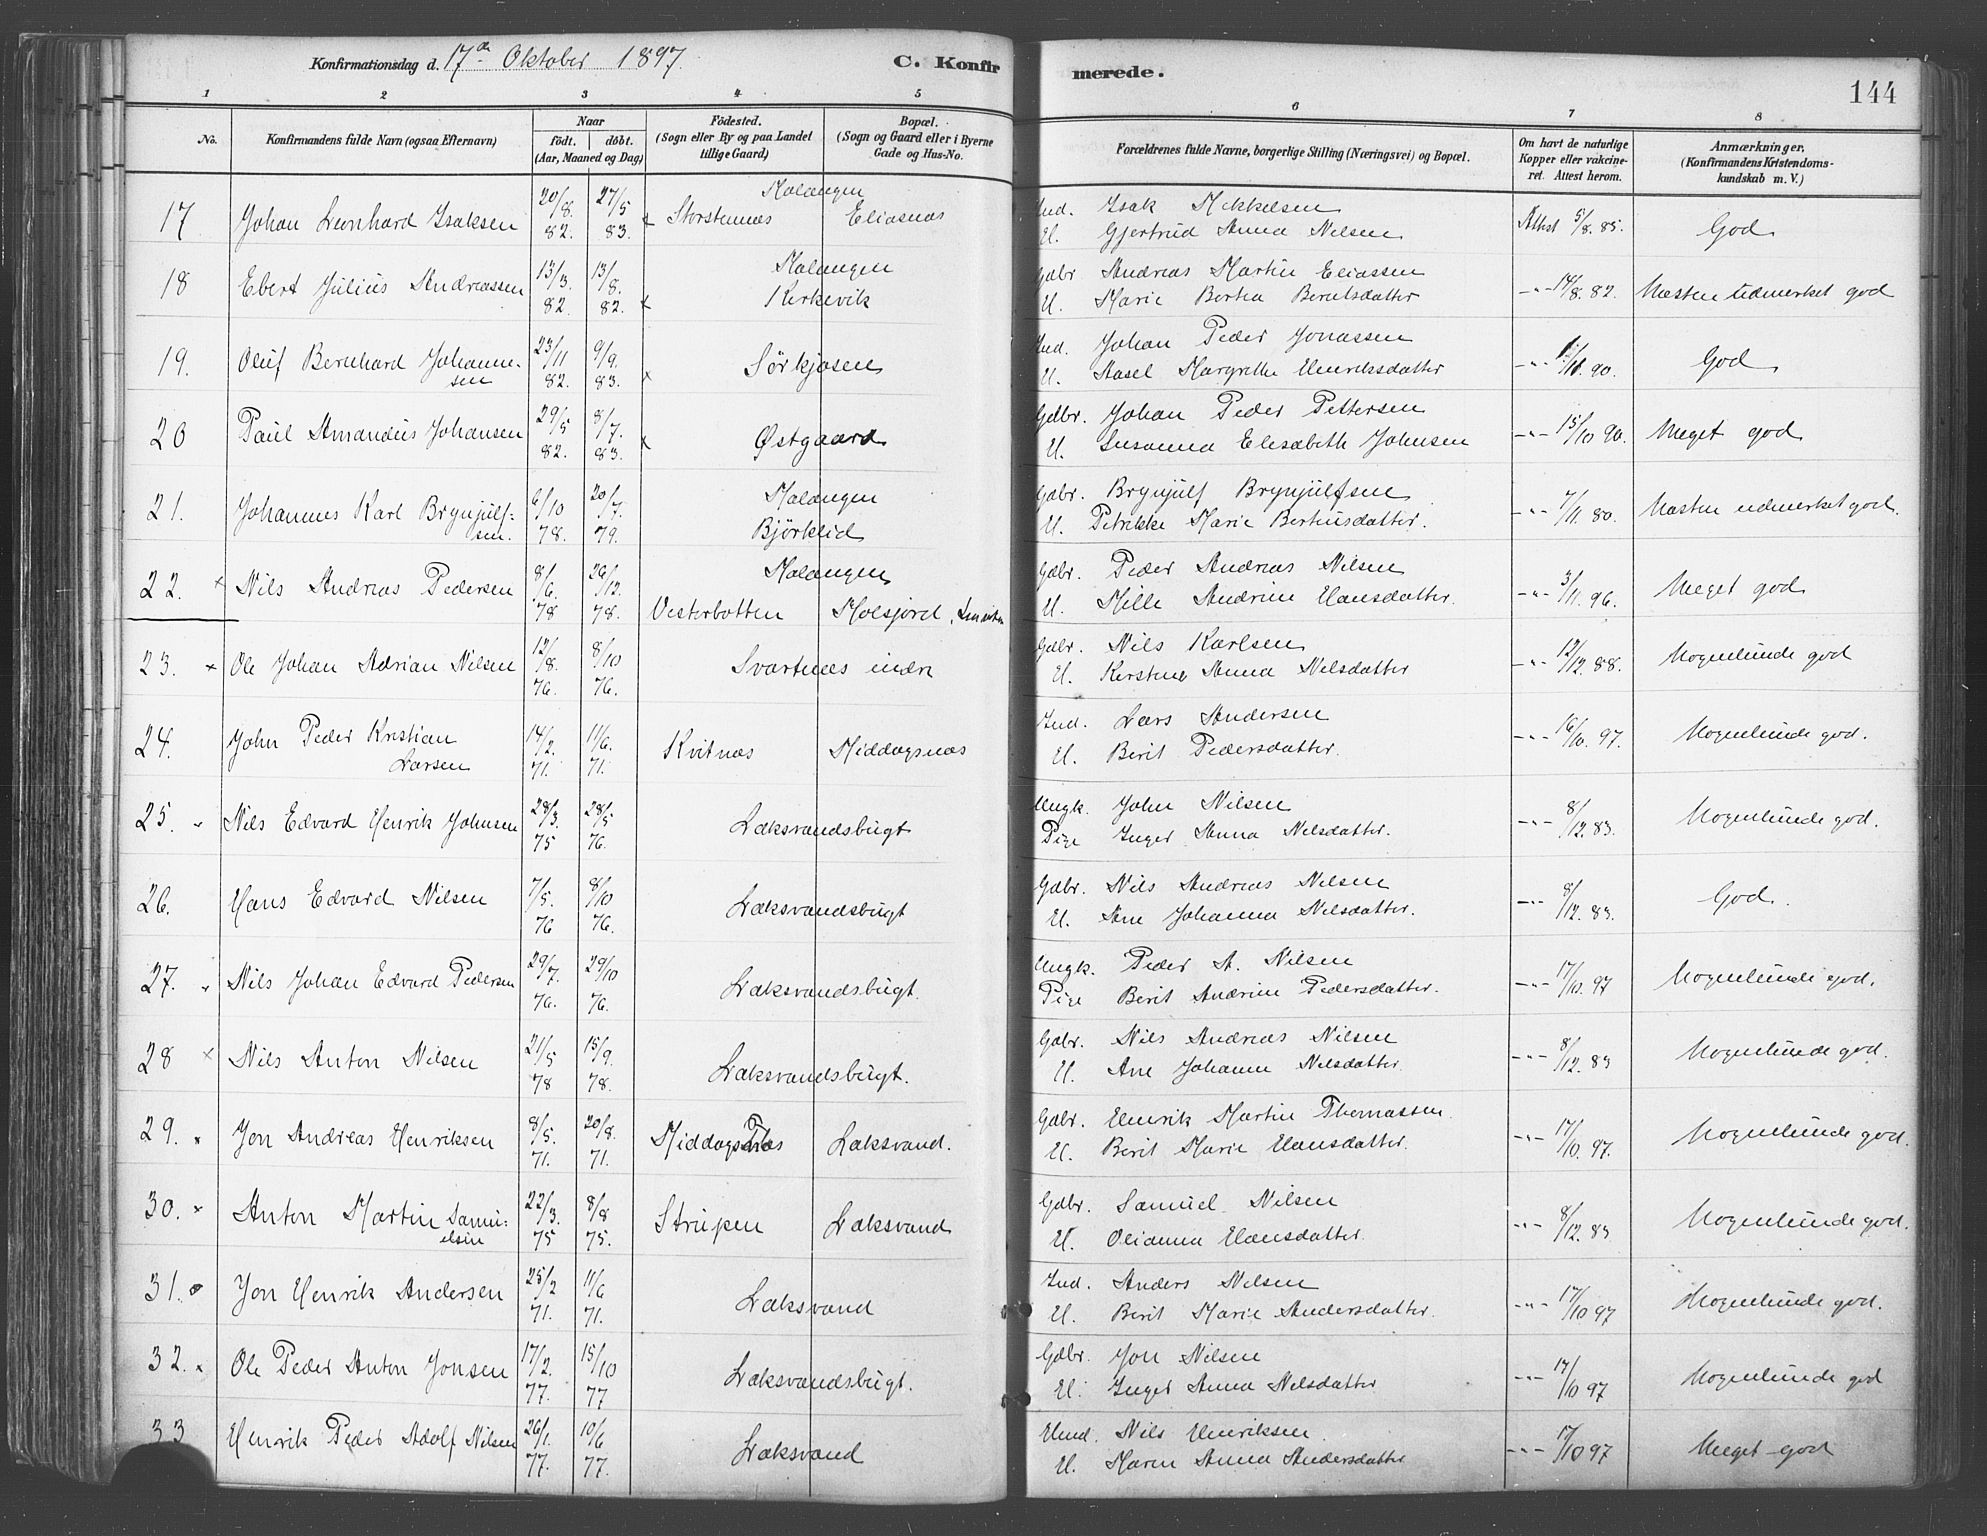 Konfirmationsdag d. 17de Oktober 1897. C. Konfirmerede. 144
1 2 3 4 5 6 7 8
No. Konfirmandens fulde Navn (ogsaa Efternavn) Naar födt. döbt. (Aar, Maaned og Dag) Födested. (Sogn eller By og paa Landet tillige Gaard) Bopæl. (Sogn og Gaard eller i Byerne Gade og Hus-No. Forældrenes fulde Navne, borgerlige Stilling (Næringsvei) og Bopæl. Om havt de naturlige Kopper eller vakcineret. Attest herom. Anmærkninger. (Konfirmandens Kristendomskundskab m. V.)
17 Johan Leonhard Isaksen 20/8. 82. 27/5 83. x Malangen Storstennæs Eliasnæs Ind. Isak Mikkelsen
H. Gjertrud Anna Nilsen Attest 5/8. 85. God
18 Ebert Julius Andreassen 13/3. 82. 13/8. 82. x Malangen Kirkevik Gdbr Andreas Martin Eliassen
H. Marie Bertha Berntsdatter -"- 14/8. 82. Næsten udmerket god
19. Oluf Bernhard Johannesen 23/11 82. 9/9. 83. x Sörkjosen Ind. Johan Peder Jonassen
H. Hasel Margrethe Henriksdatter -"- /11. 90. God
20 Paul Amandus Johansen 29/5 82. 8/7. 83. x Østgaard Gdbr. Johan Peder Pettersen
H. Susanna Elisabeth Johnsen -"- 15/10 96. Meget god
21. Johannes Karl Brynjulfsen. 6/10 78. 20/7. 79. Malangen Björklid Gdbr. Brynjulf Brynjulfsen
H. Petrikke Marie Berthusdatter. -"- 7/11. 80. Næsten udmerket god.
22. x Nils Andreas Pedersen 8/6. 78 26/12. 78. Malangen Vesterbotten Målsjord, Gdbr. Peder Andreas Nilsen
H. Mille Andrine Hansdatter. -"- 3/11. 96. Meget god
23. x Ole Johan Adrian Nilsen 12/8. 76. 8/10 76. Svartnæs indre Gdbr. Nils Karlsen
H. Kirstine Anna Nilsdatter -"- 12/12. 88. Nogenlunde god
24. John Peder Kristian Larsen 14/2. 71. 11/6. 71. Kvitnæs Middagsnæs Ind. Lars Andersen
H. Berit Pedersdatter. -"- 16/10. 97. Nogenlunde god.
25. " Nils Edvard Henrik Johnsen 28/3. 75 28/5 76. Laksvandsbugt Ungk. John Nilsen
Pige Inger Anna Nilsdatter. -"- 8/12. 83. Nogenlunde god.
26. Hans Edvard Nilsen 7/5. 76 8/10 76. Laksvandsbugt Gdbr. Nils Andreas Nilsen
H. Ane Johanna Nilsdatter. -"- 8/12. 83. God.
27. " Nils Johan Edvard Pedersen 29/7. 76. 29/10 76. Laksvandsbugt. Ungk. Peder A. Nilsen
Pige Berit Andrine Pedersdatter. -"- 17/10. 97 Nogenlunde god.
28 x Nils Anton Nilsen 21/5 78 15/9. 78. Laksvandsbugt. Gdbr. Nils Andreas Nilsen
H. Ane Johanne Nilsdatter. -"- 8/12. 83 Nogenlunde god.
29. x Jon Andreas Henriksen 8/5. 71. 20/8. 71. Middagsnæs Laksvand. Gdbr. Henrik Martin Thomassen
H. Berit Marie Hansdatter. -"- 17/10. 97. Nogenlunde god.
30. x Anton Martin Samuelsen 22/3. 75 8/8 75. Strupen Laksvand Gdbr. Samuel Nilsen
H. Olianna Hansdatter. -"- 8/12. 83 Nogenlunde god.
31. Jon Henrik Andersen 25/2 71. 11/6 71. Laksvand Ind. Anders Nilsen
H. Berit Marie Andersdatter. -"- 17/10 97 Nogenlunde god.
32. x Ole Peder Anton Jonsen 17/2. 77. 15/10 77 Laksvandsbugt. Gdbr. Jon Nilsen
H. Inger Anna Nilsdatter -"- 17/10 97 Nogenlunde god
33 Henrik Peder Adolf Nilsen 26/1. 77. 10/6 77. Laksvand Nils Henriksen
H. Maren Anna Andersdatter -"- 17/10 97 Meget god